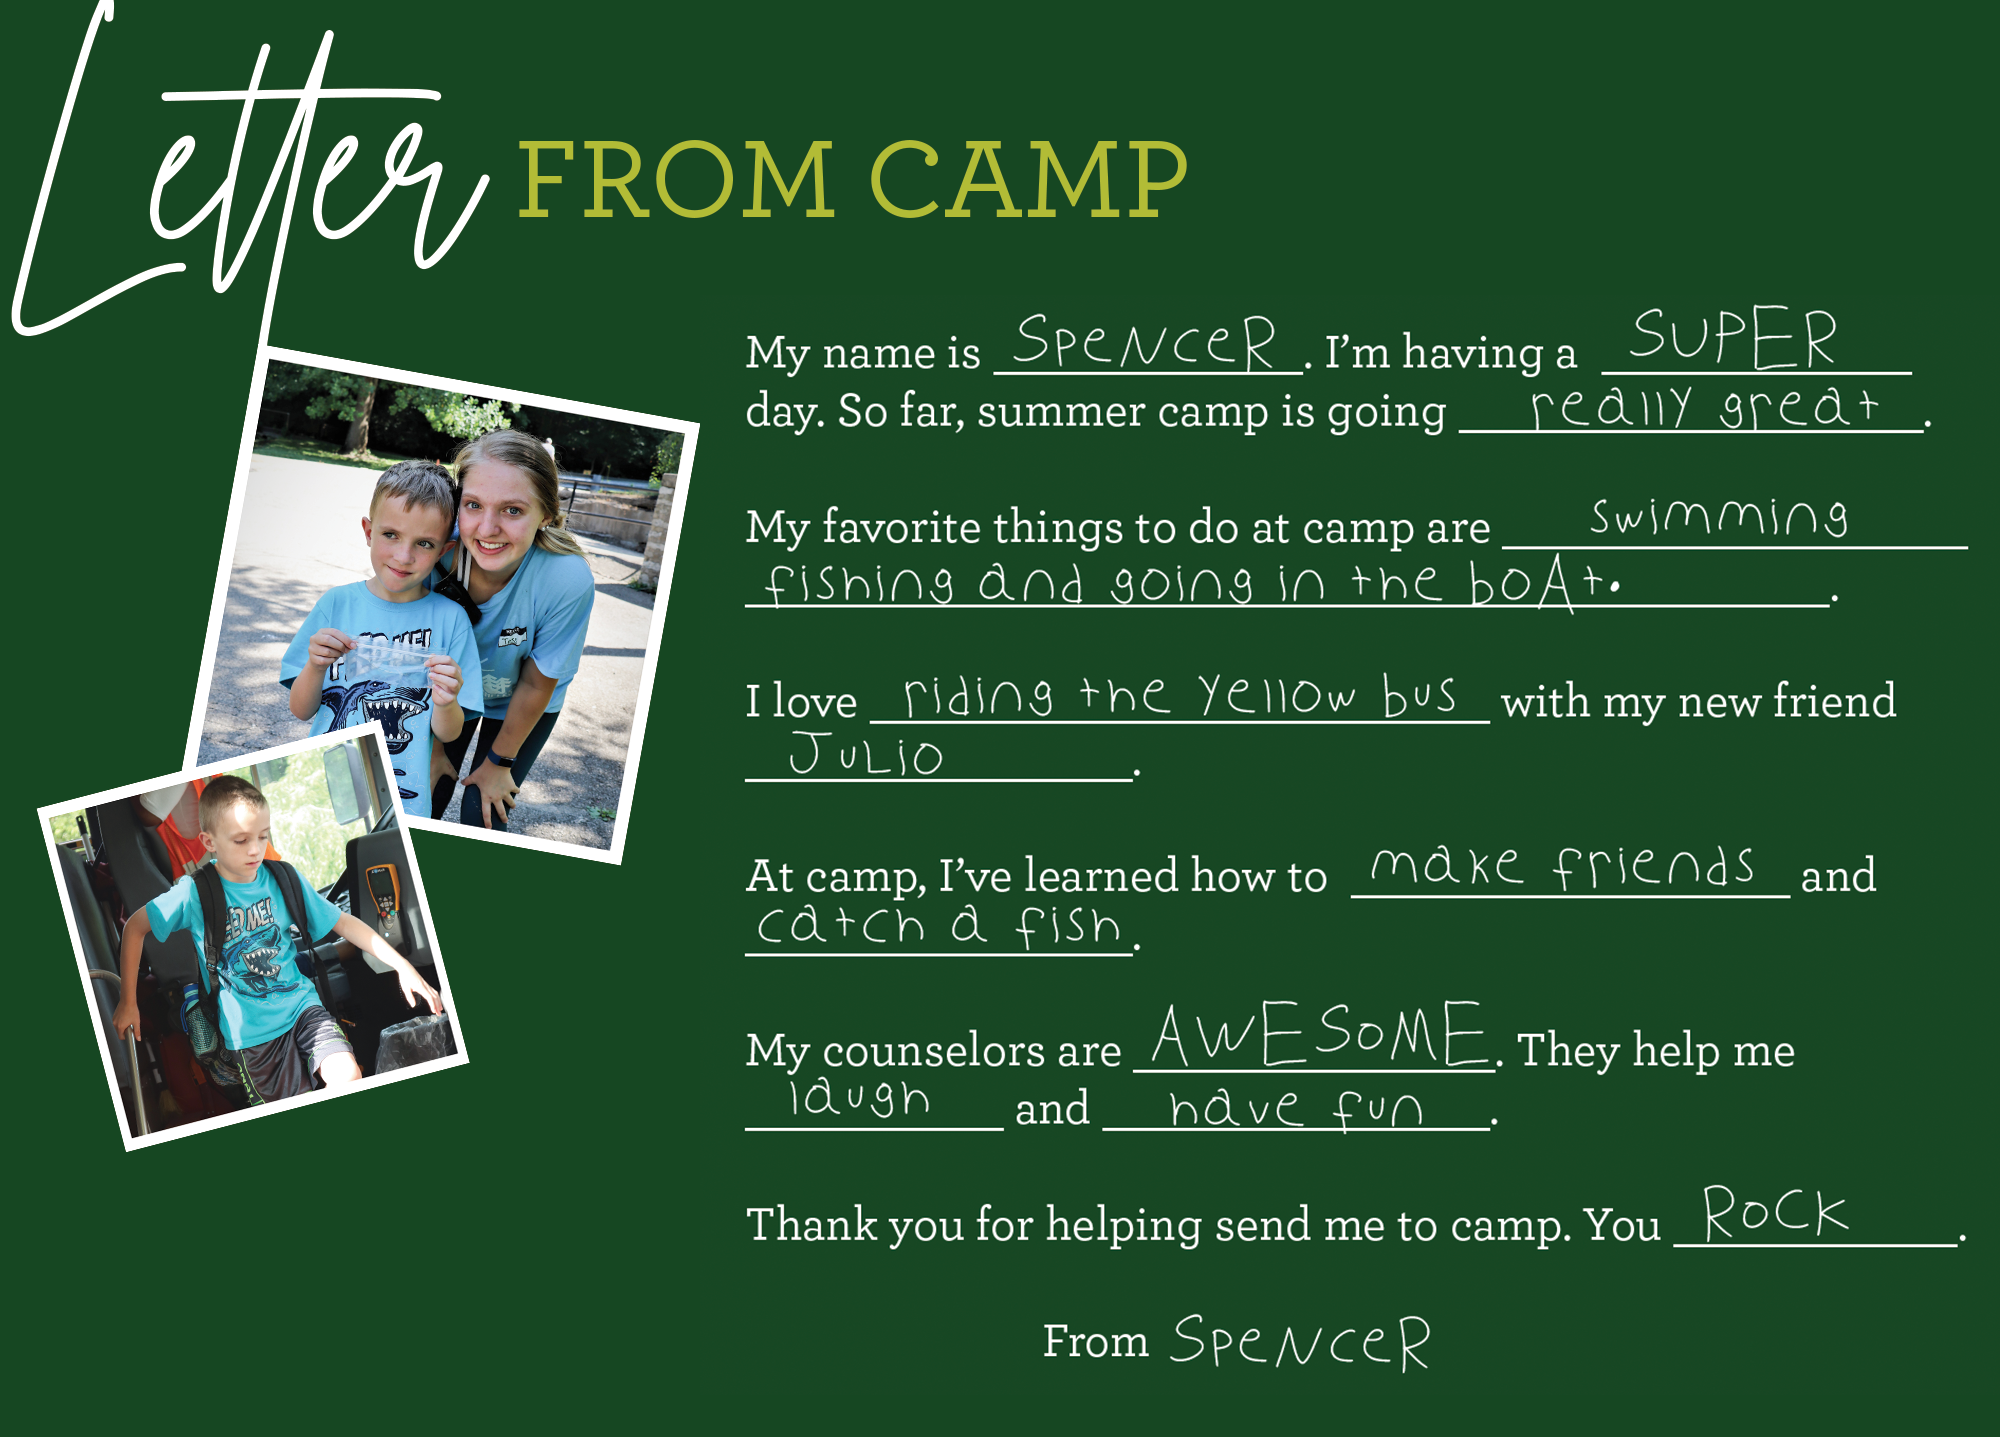 Letter FROM CAMP
My name is SpeNceR. I'm having a SUPER
day. So far, summer camp is going really great.
My favorite things to do at camp are swimming
fishing and going in the boAt..
I love riding the yellow bus with my new friend
JuLio.
At camp, I've learned how to make friends and
catch a fish.
My counselors are AWESoME. They help me
laugh and have fun.
Thank you for helping send me to camp. You RoCK.
From SpeNceR
FEED ME!
Tess